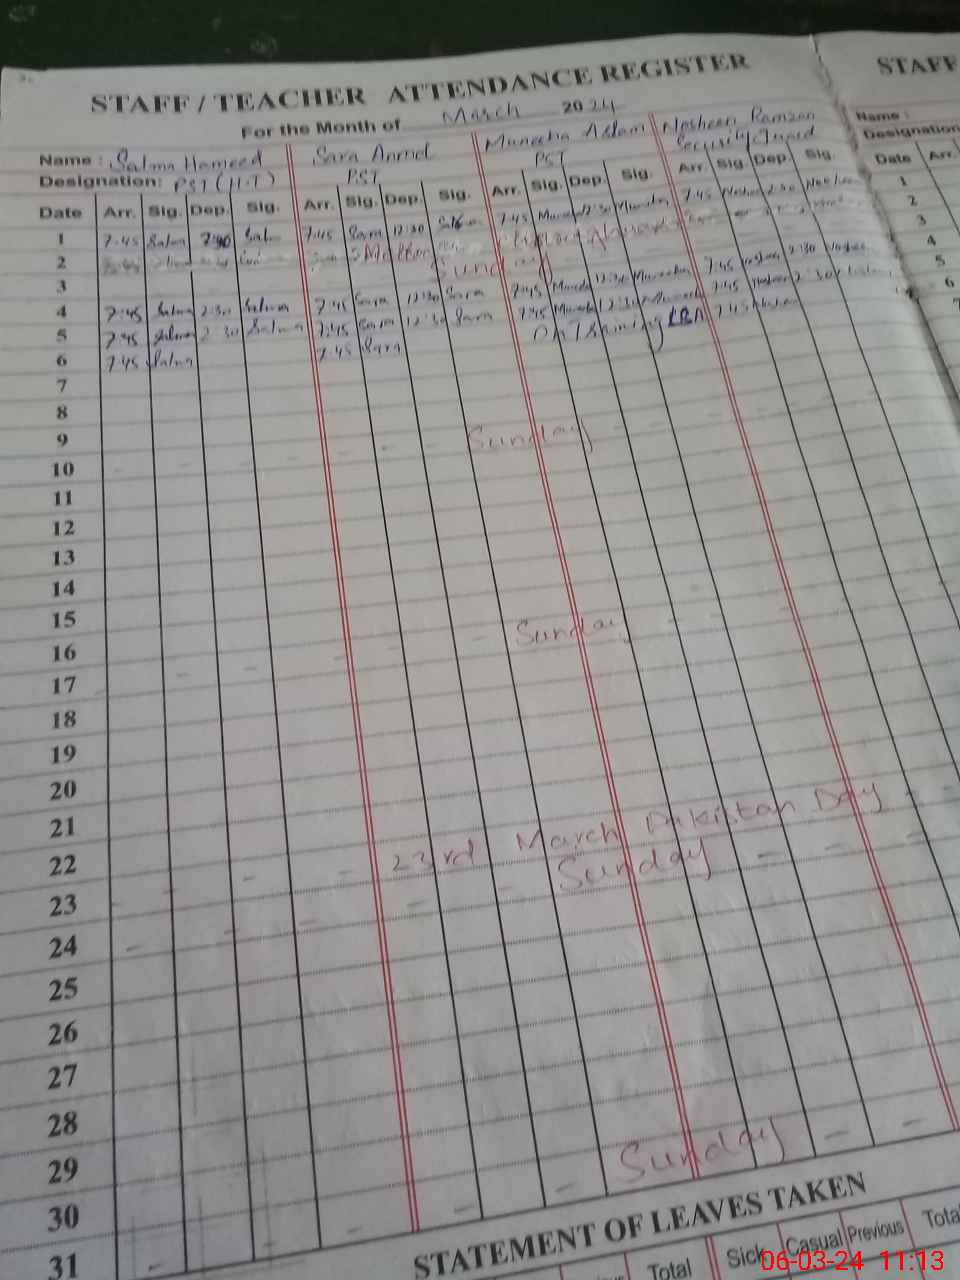 STAFF / TEACHER ATTENDANCE REGISTER
STAFF
For the Month of March 2024
Name : Salma Hameed Sara Anmol Muneeba Aslam Nosheen Ramzan
Name :
Designation: PST (H.T) PST PST Security Guard
Designation
Date Arr. Sig. Dep. Sig. Arr. Sig. Dep. Sig. Arr. Sig. Dep. Sig. Arr. Sig. Dep. Sig.
Date Arr.
1 7:45 Salma Sal 7:45 Sara 12:30 7:45 12:30 7:45 2:30
1
2
2
3 Sunday
3
4 7:45 Salma 2:30 Salma 7:45 Sara 12:30 Sara 7:45 12:30 Muneeba 7:45 2:30
4
5 7:45 Salma 2:30 Salma 7:45 Sara 12:30 Sara 7:45 12:30 7:45 2:30
5
6 7:45 Salma 7:45 Sara On Training 7:45
6
7
7
8
9
10 Sunday
11
12
13
14
15
16
17 Sunday
18
19
20
21
22
23 23rd March Pakistan Day
24 Sunday
25
26
27
28
29
30
31 Sunday
STATEMENT OF LEAVES TAKEN
Total Sick Casual Previous Total
06-03-24 11:13